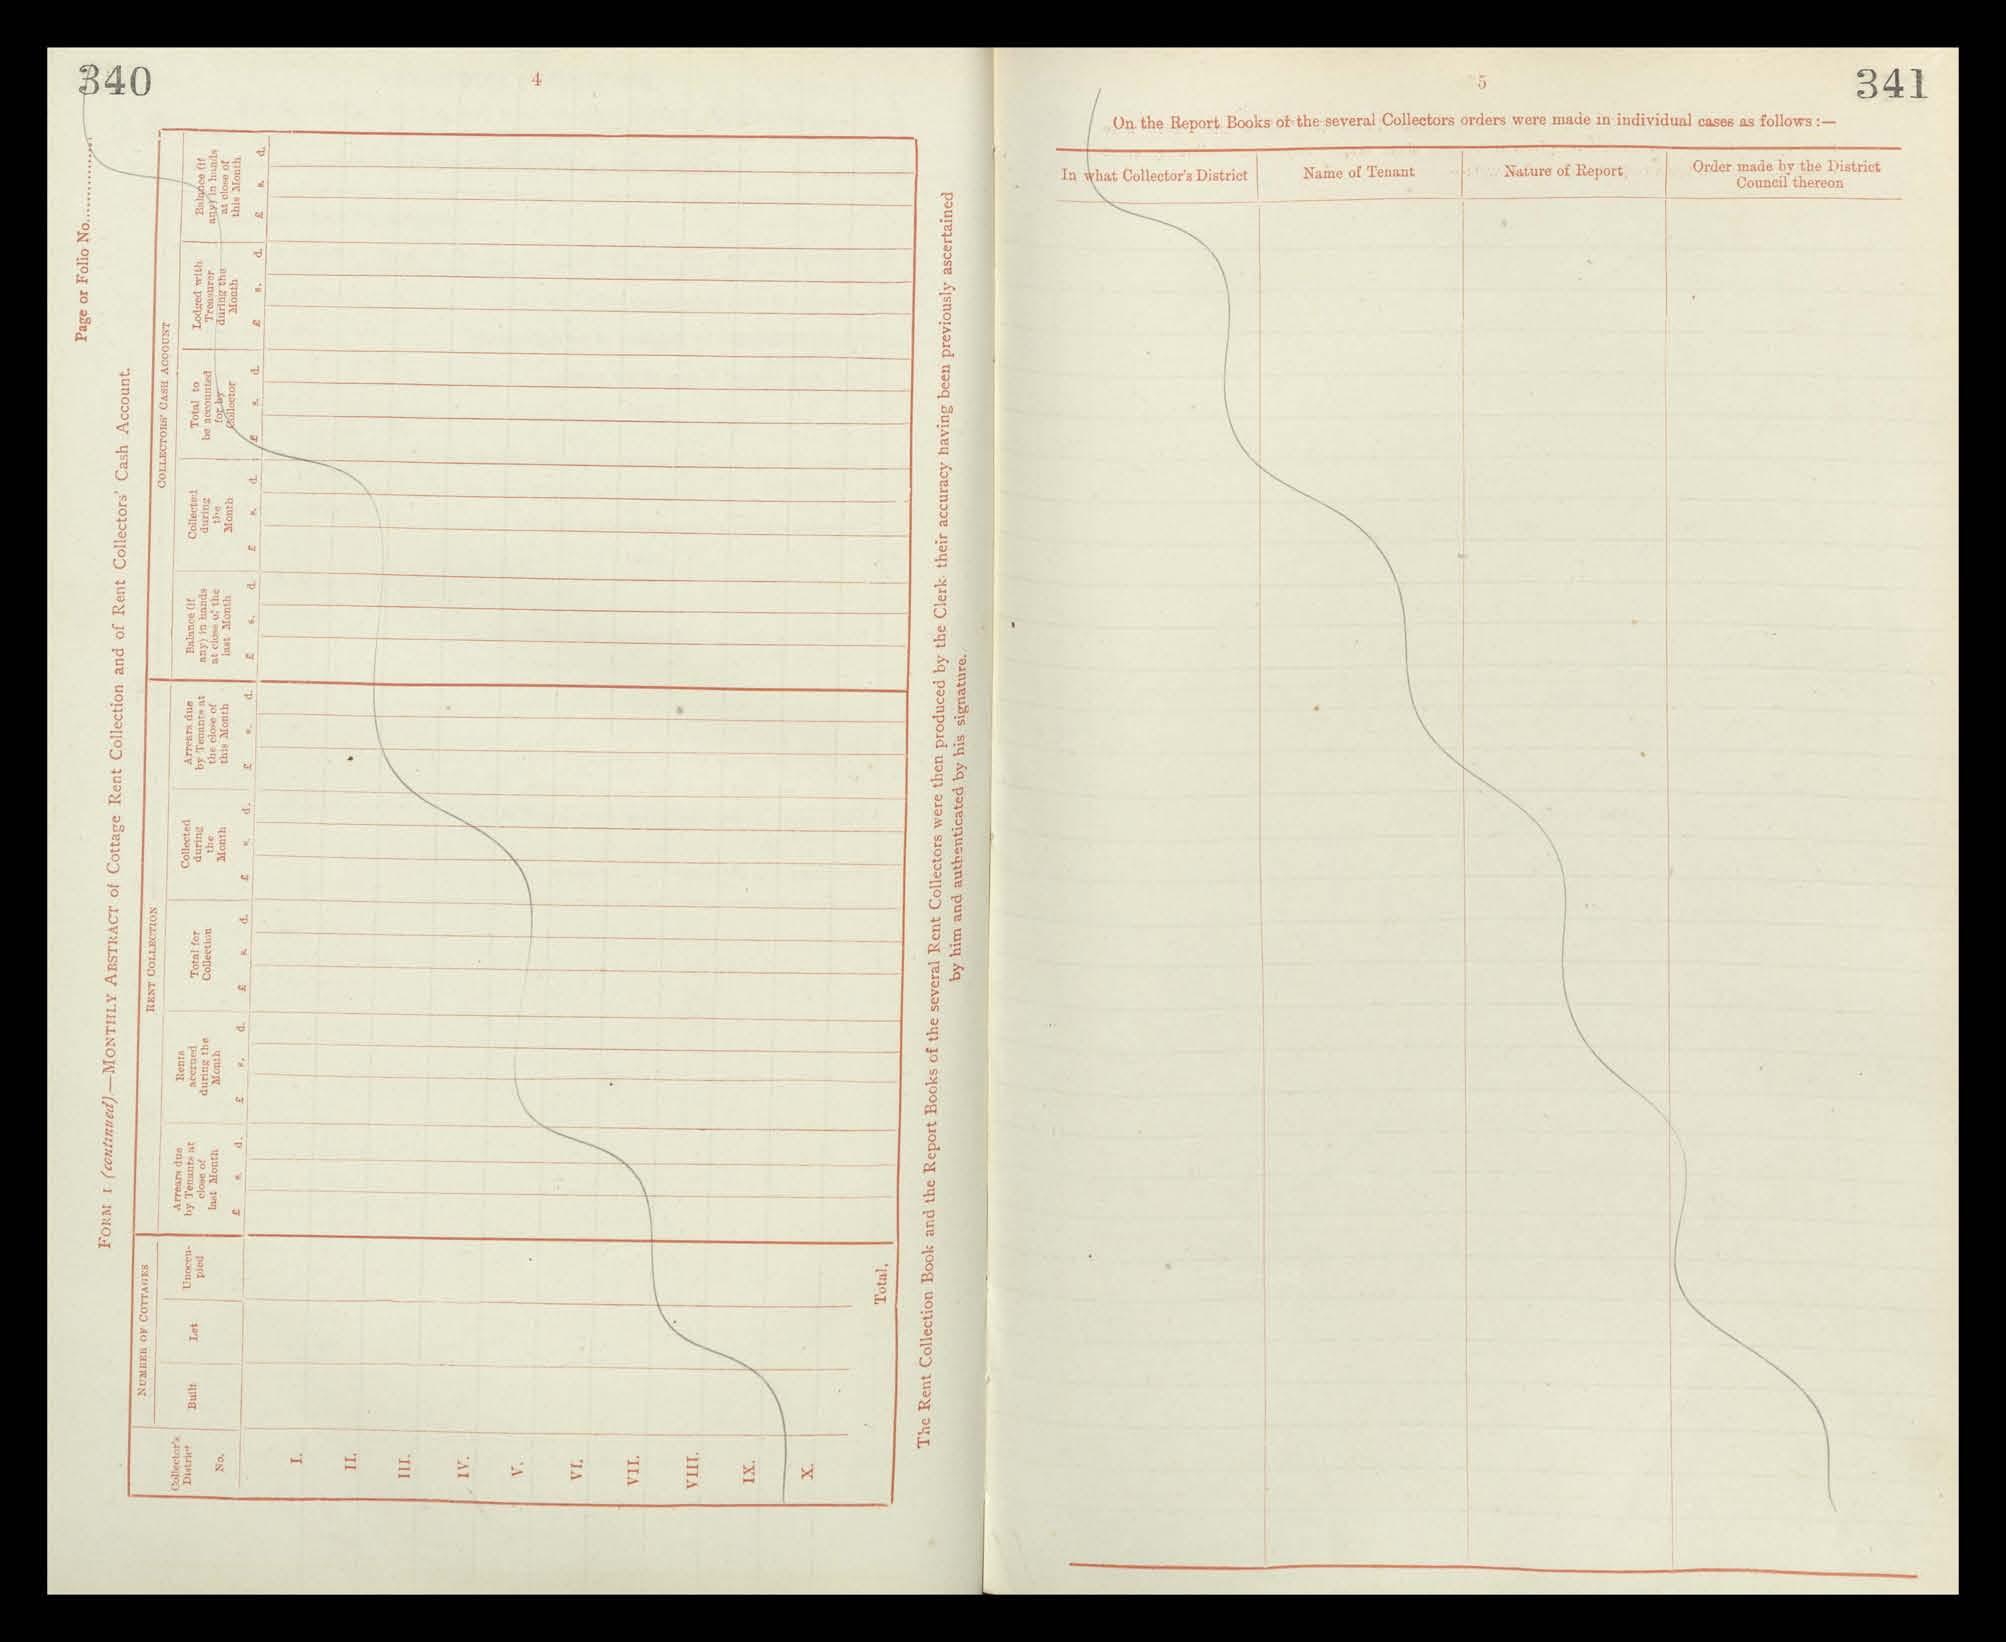 340
4
Page or Folio No.
FORM 1 (continued).—MONTHLY ABSTRACT of Cottage Rent Collection and of Rent Collectors' Cash Account.
NUMBER OF COTTAGES
RENT COLLECTION
COLLECTORS' CASH ACCOUNT
Collector's
District
No.
Built
Let
Unoccu-
pied
Arrears due
by Tenants at
close of
last Month
£ s. d.
Rents
accrued
during the
Month
£ s. d.
Total for
Collection
£ s. d.
Collected
during
the
Month
£ s. d.
Arrears due
by Tenants at
the close of
this Month
£ s. d.
Balance (if
any) in hands
at close of the
last Month
£ s. d.
Collected
during
the
Month
£ s. d.
Total to
be accounted
for by
Collector
£ s. d.
Lodged with
Treasurer
during the
Month
£ s. d.
Balance (if
any) in hands
at close of
this Month
£ s. d.
I.
II.
III.
IV.
V.
VI.
VII.
VIII.
IX.
X.
Total,
The Rent Collection Book and the Report Books of the several Rent Collectors were then produced by the Clerk, their accuracy having been previously ascertained
by him and authenticated by his signature.
5
341
On the Report Books of the several Collectors orders were made in individual cases as follows:—
In what Collector's District
Name of Tenant
Nature of Report
Order made by the District
Council thereon